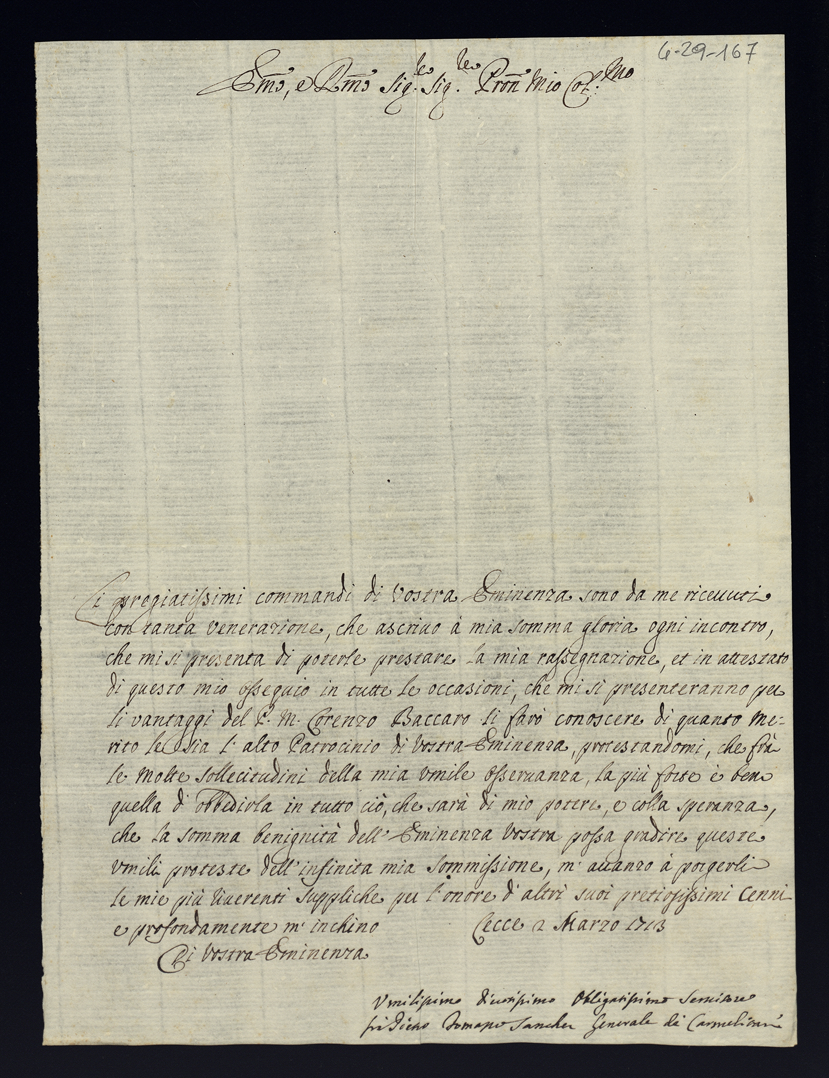 4-29-167
Em̃o, e Rm̃o Sig.re Sig.re Prõn Mio Col.mo
Li pregiatissimi commandi di Vostra Eminenza sono da me riceuuti
con tanta venerazione, che ascriuo à mia somma gloria ogni incontro,
che mi si presenta di poterle prestare la mia rassegnazione, et in attestato
di questo mio ossequio in tutte le occasioni, che mi si presenteranno per
li vantaggi del P. M. Lorenzo Baccaro li farò conoscere di quanto me-
rito le sia l'alto Patrocinio di Vostra Eminenza, protestandomi, che frà
le molte sollecitudini della mia vmile osseruanza, la più forte è ben
quella d'obbedirla in tutto ciò, che sarà di mio potere, e colla speranza,
che la somma benignità dell'Eminenza Vostra possa gradire queste
vmili proteste dell'infinita mia sommissione, m'auanzo à porgerli
le mie più riuerenti suppliche per l'onore d'altri suoi pretiosissimi cenni
e profondamente m'inchino Lecce 2 Marzo 1713
Di Vostra Eminenza
Vmilissimo diuotissimo Obligatissimo Seruitore
frà Pietro Tomaso Sanchez Generale de Carmelitani